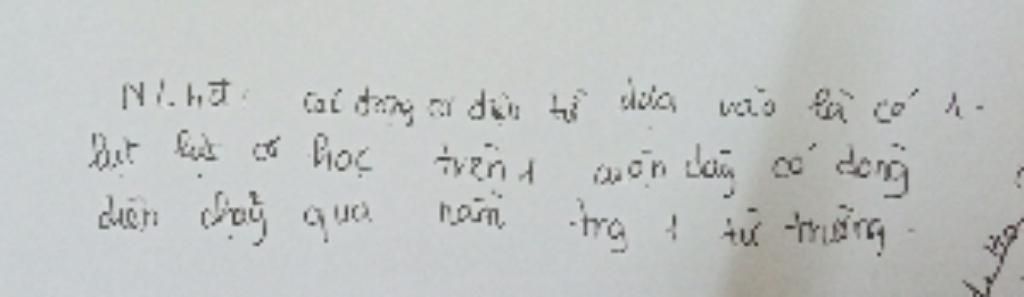 N/.hđ: các động cơ điện từ dựa vào là có 1
lực lực cơ học trên 1 cuộn dây có dòng
điện chạy qua nằm trg 1 từ trường.